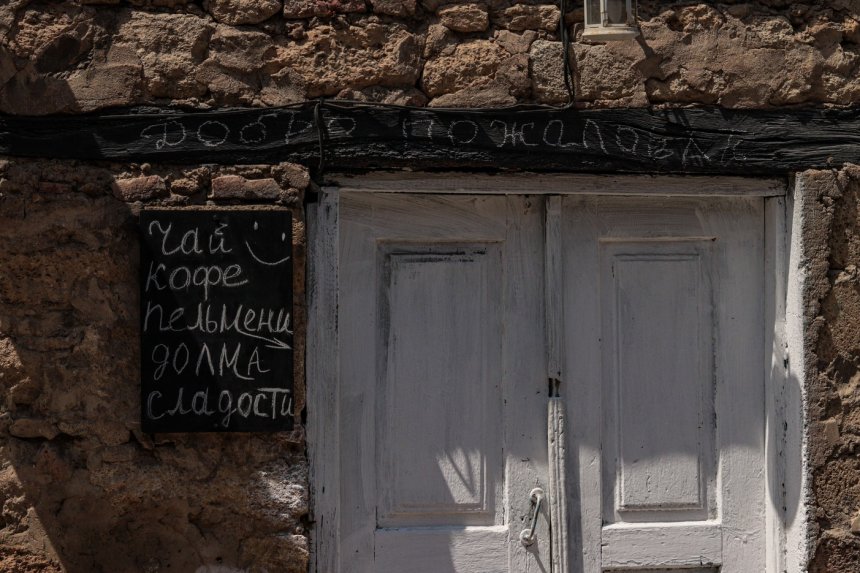 Добро пожаловат
Чай
кофе
пельмени
долма
сладости